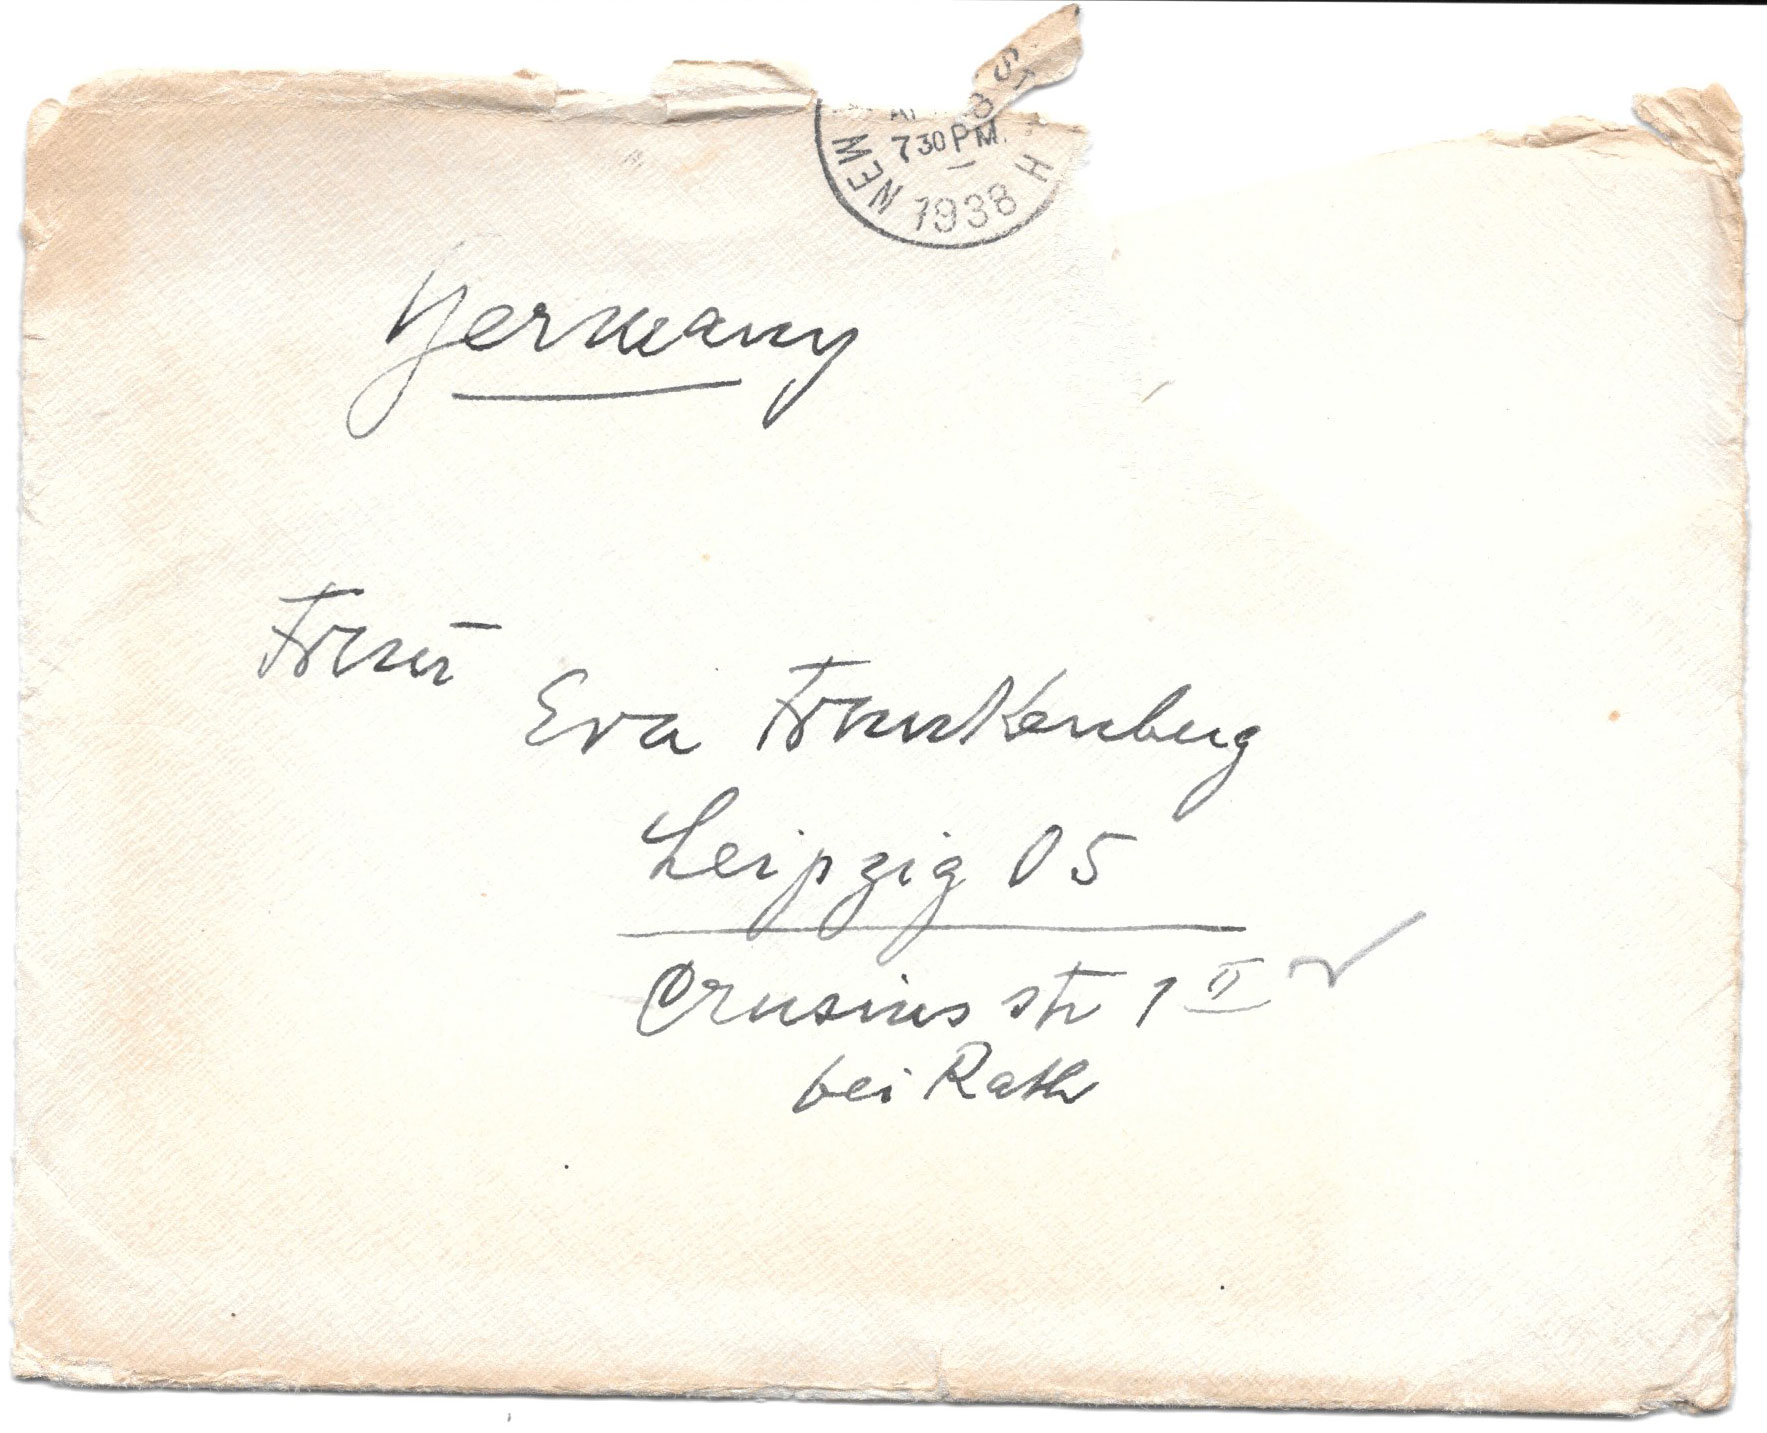 ST.
7 30 PM.
NEW 1938 H
Germany
Frau
Eva Frankenberg
Leipzig O5
Crusius str 1 II
bei Rath